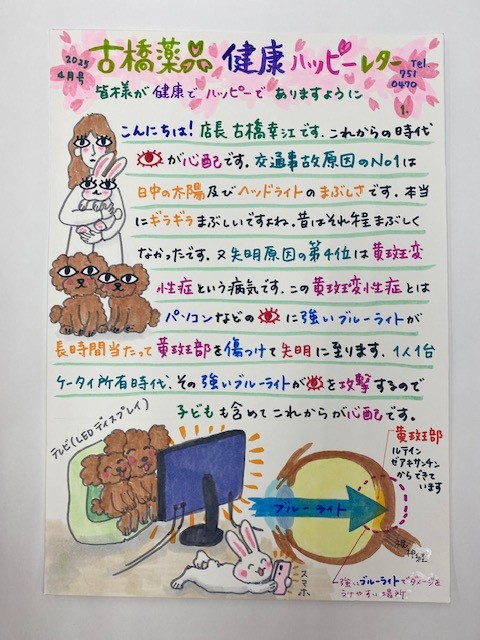 2025
4月号
古橋薬品 健康ハッピーレター
Tel.
751
0470
皆様が健康でハッピーでありますように
1.
こんにちは！店長古橋幸江です。これからの時代
が心配です。交通事故原因のNo1は
日中の太陽及びヘッドライトのまぶしさです。本当
にギラギラまぶしいですよね。昔はそれ程まぶしく
なかったです。又失明原因の第4位は黄斑変
性症という病気です。この黄斑変性症とは
パソコンなどの に強いブルーライトが
長時間当たって黄斑部を傷つけて失明に至ります。1人1台
ケータイ所有時代、その強いブルーライトが を攻撃するので
子どもも含めてこれからが心配です。
テレビ(LEDディスプレイ)
ブルーライト
スマホ
黄斑部
ルテイン
ゼアキサンチン
からできて
います
視神経
強いブルーライトでダメージを
うけやすい場所